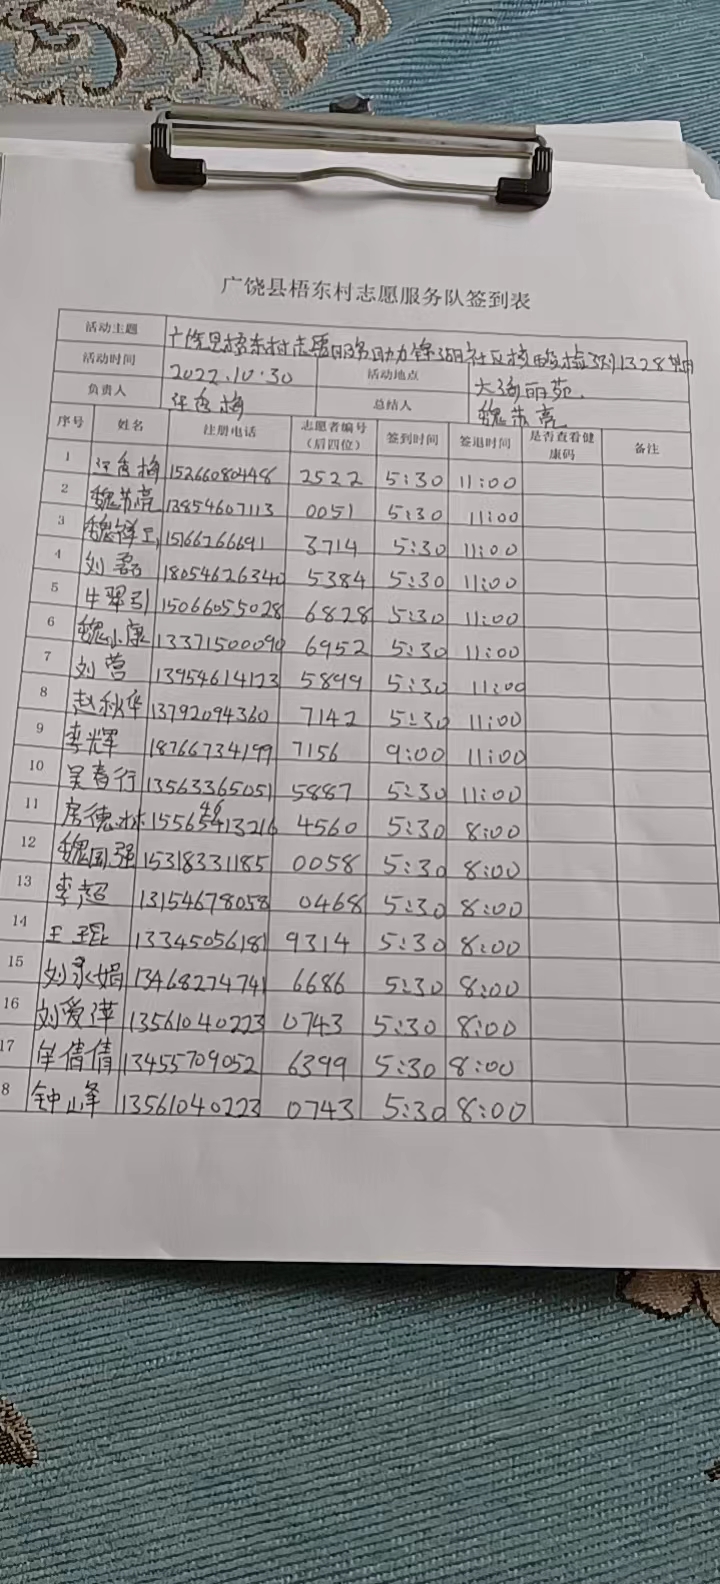 广饶县梧东村志愿服务队签到表
活动主题 广饶县梧东村志愿服务队助力锦湖社区核酸检测1328期
活动时间 2022.10.30 活动地点 大海丽苑.
负责人 香梅 总结人 魏苏亮
序号 姓名 注册电话 志愿者编号(后四位) 签到时间 签退时间 是否查看健康码 备注
1 香梅 15266080448 2522 5:30 11:00
2 魏苏亮 13854607113 0051 5:30 11:00
3 魏锋卫 15166266691 3714 5:30 11:00
4 刘磊 18054626340 5384 5:30 11:00
5 牛翠引 15066055028 6828 5:30 11:00
6 魏小康 13371500090 6952 5:30 11:00
7 刘营 13954614123 5899 5:30 11:00
8 赵秋华 13792094360 7142 5:30 11:00
9 李辉 18766734199 7156 9:00 11:00
10 吴春行 13563365051 5887 5:30 11:00
11 房德林 4560 5:30 8:00
12 魏国强 15318331185 0058 5:30 8:00
13 李超 13154678058 0468 5:30 8:00
14 王琨 13345056181 9314 5:30 8:00
15 刘永娟 13468274741 6686 5:30 8:00
16 刘爱萍 13561040223 0743 5:30 8:00
17 牟倩倩 13455709052 6399 5:30 8:00
8 钟山峰 13561040223 0743 5:30 8:00